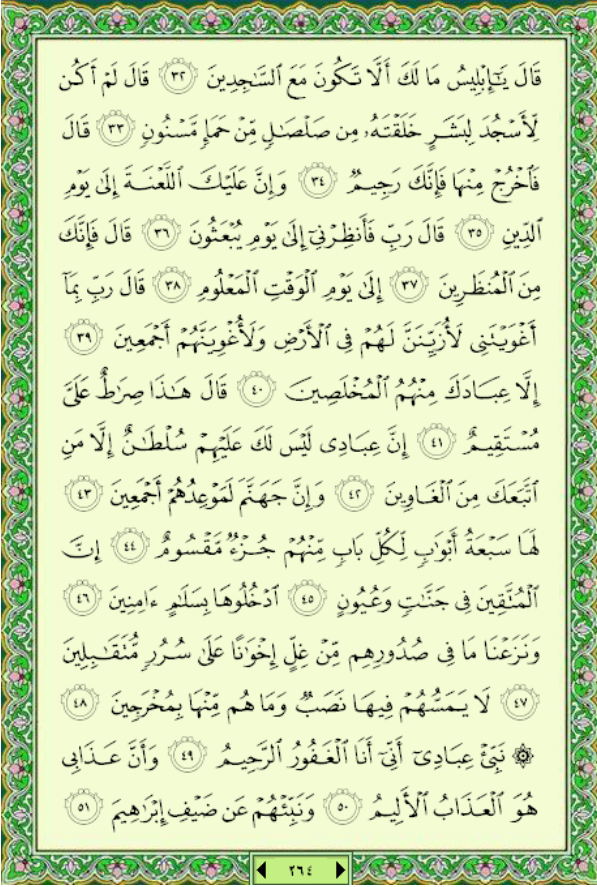 قَالَ يَٰٓإِبْلِيسُ مَا لَكَ أَلَّا تَكُونَ مَعَ ٱلسَّٰجِدِينَ ٣٢ قَالَ لَمْ أَكُن
لِّأَسْجُدَ لِبَشَرٍ خَلَقْتَهُۥ مِن صَلْصَٰلٍ مِّنْ حَمَإٍ مَّسْنُونٍ ٣٣ قَالَ
فَٱخْرُجْ مِنْهَا فَإِنَّكَ رَجِيمٌ ٣٤ وَإِنَّ عَلَيْكَ ٱللَّعْنَةَ إِلَىٰ يَوْمِ
ٱلدِّينِ ٣٥ قَالَ رَبِّ فَأَنظِرْنِىٓ إِلَىٰ يَوْمِ يُبْعَثُونَ ٣٦ قَالَ فَإِنَّكَ
مِنَ ٱلْمُنظَرِينَ ٣٧ إِلَىٰ يَوْمِ ٱلْوَقْتِ ٱلْمَعْلُومِ ٣٨ قَالَ رَبِّ بِمَآ
أَغْوَيْتَنِى لَأُزَيِّنَنَّ لَهُمْ فِى ٱلْأَرْضِ وَلَأُغْوِيَنَّهُمْ أَجْمَعِينَ ٣٩
إِلَّا عِبَادَكَ مِنْهُمُ ٱلْمُخْلَصِينَ ٤٠ قَالَ هَٰذَا صِرَٰطٌ عَلَىَّ
مُسْتَقِيمٌ ٤١ إِنَّ عِبَادِى لَيْسَ لَكَ عَلَيْهِمْ سُلْطَٰنٌ إِلَّا مَنِ
ٱتَّبَعَكَ مِنَ ٱلْغَاوِينَ ٤٢ وَإِنَّ جَهَنَّمَ لَمَوْعِدُهُمْ أَجْمَعِينَ ٤٣
لَهَا سَبْعَةُ أَبْوَٰبٍ لِّكُلِّ بَابٍ مِّنْهُمْ جُزْءٌ مَّقْسُومٌ ٤٤ إِنَّ
ٱلْمُتَّقِينَ فِى جَنَّٰتٍ وَعُيُونٍ ٤٥ ٱدْخُلُوهَا بِسَلَٰمٍ ءَامِنِينَ ٤٦
وَنَزَعْنَا مَا فِى صُدُورِهِم مِّنْ غِلٍّ إِخْوَٰنًا عَلَىٰ سُرُرٍ مُّتَقَٰبِلِينَ
٤٧ لَا يَمَسُّهُمْ فِيهَا نَصَبٌ وَمَا هُم مِّنْهَا بِمُخْرَجِينَ ٤٨
۞ نَبِّئْ عِبَادِىٓ أَنِّىٓ أَنَا ٱلْغَفُورُ ٱلرَّحِيمُ ٤٩ وَأَنَّ عَذَابِى
هُوَ ٱلْعَذَابُ ٱلْأَلِيمُ ٥٠ وَنَبِّئْهُمْ عَن ضَيْفِ إِبْرَٰهِيمَ ٥١
٢٦٤